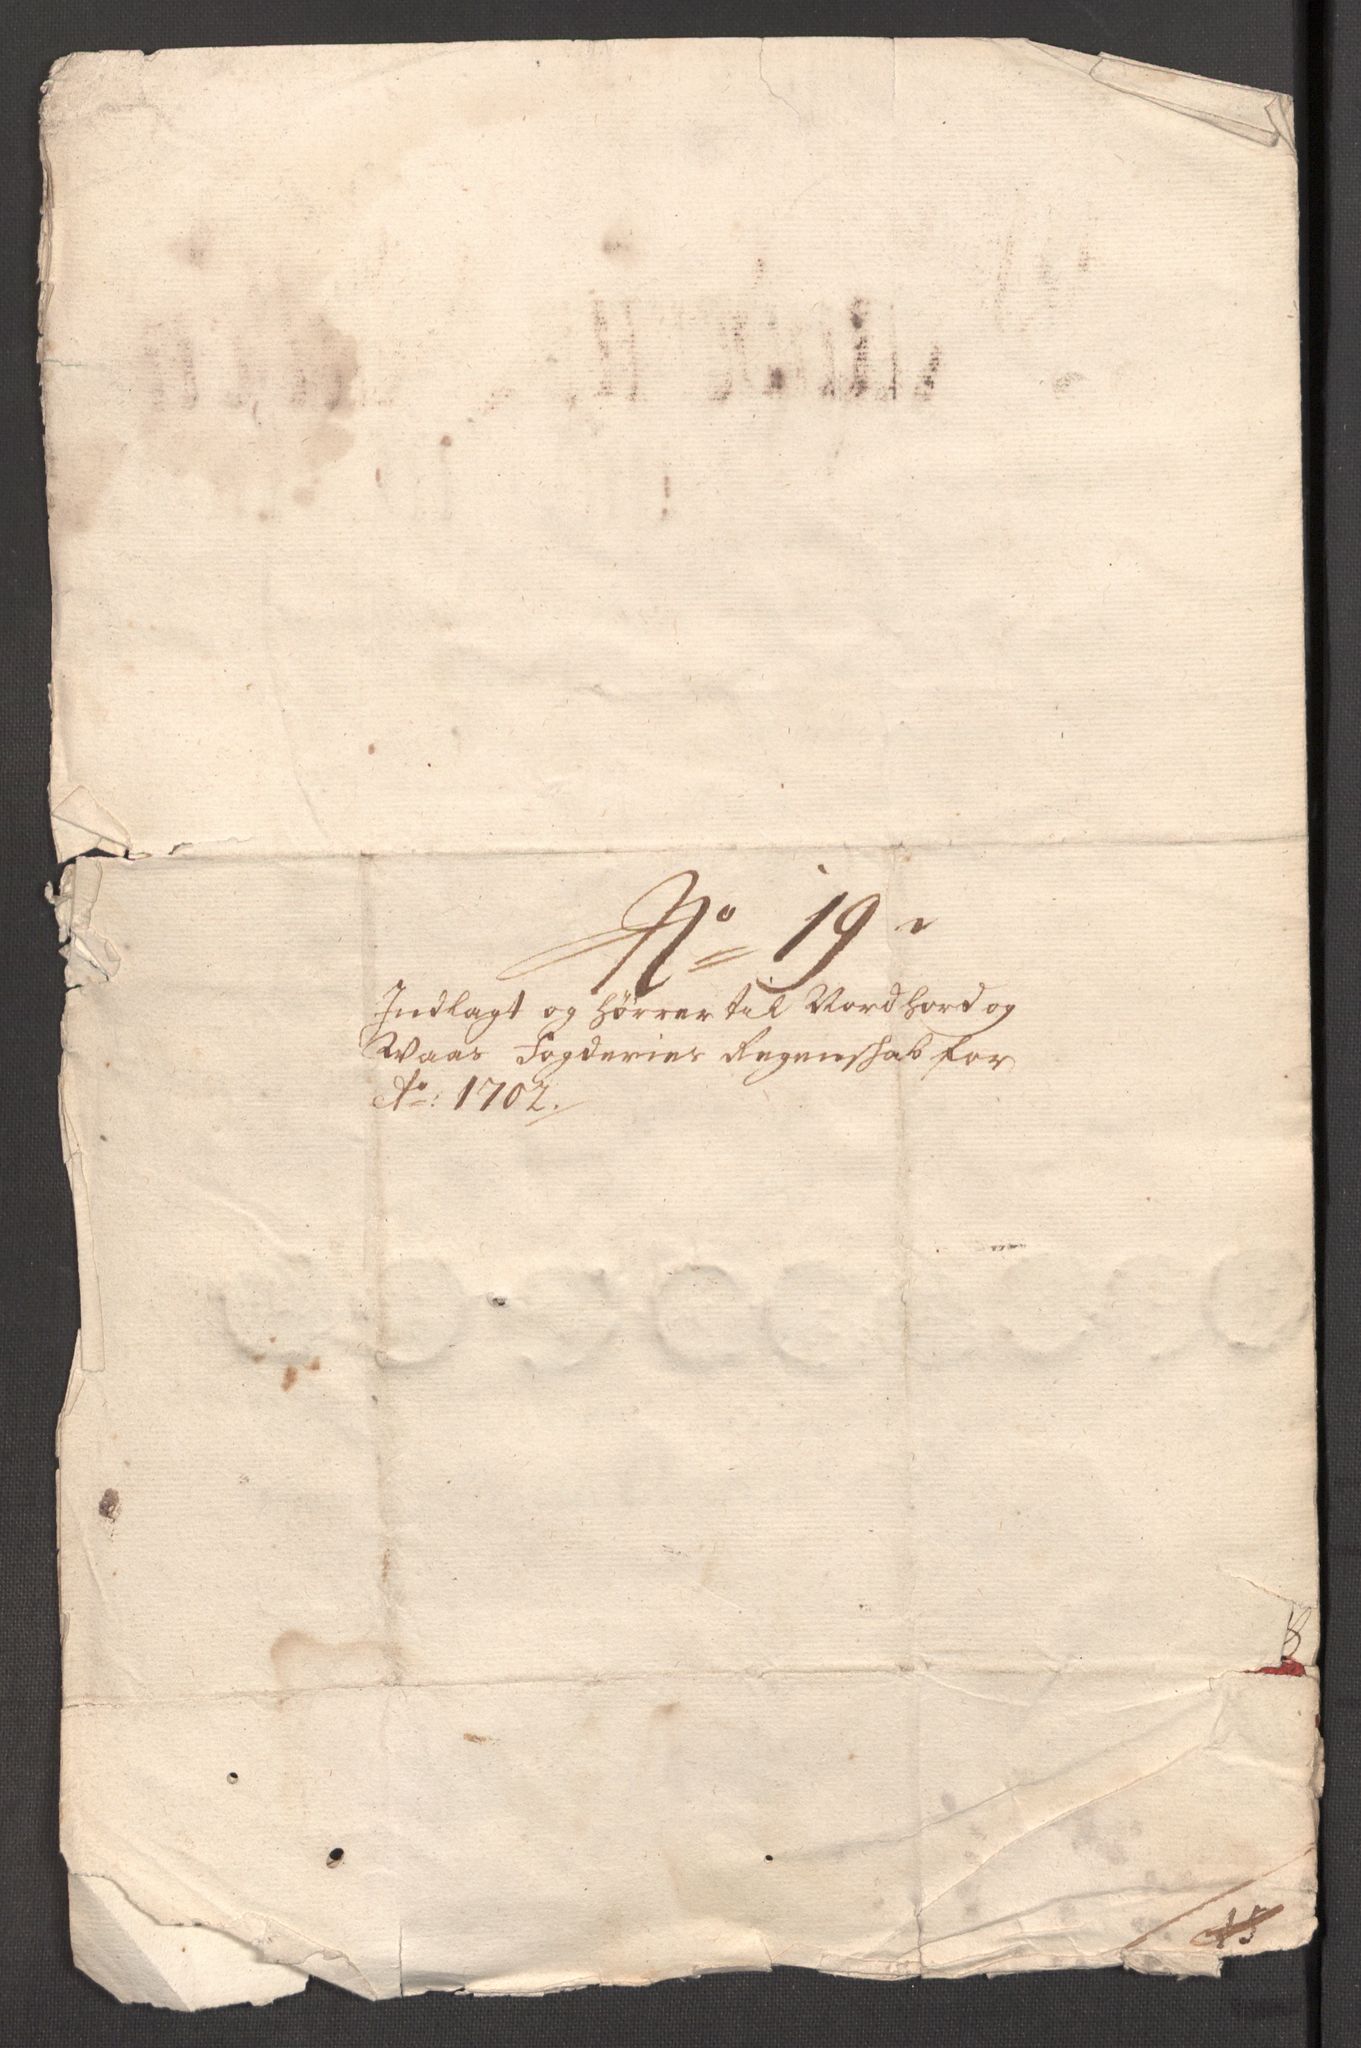 No 19
Indlagt og hörrer til Nordhord og
Waas Fogderies Regenskab for
Ao: 1702.